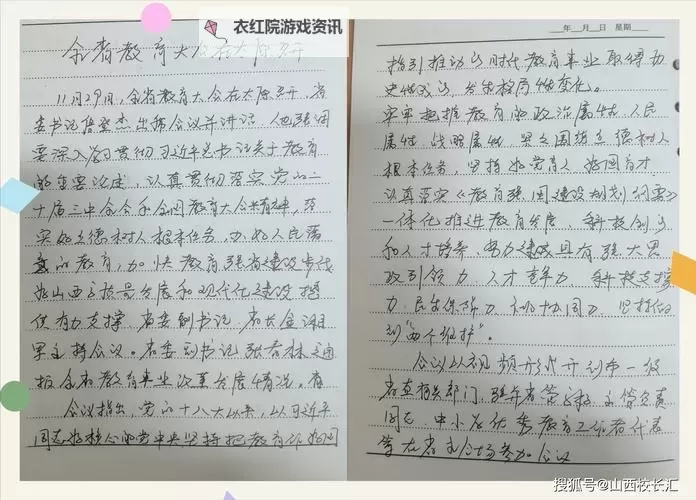 衣红院游戏资讯
全省教育大会在太原召开
11月29日,全省教育大会在太原召开,省
委书记唐登杰出席会议并讲话,他强调
要深入学习贯彻习近平总书记关于教育
的重要论述,认真贯彻落实党的二
十届三中全会和全国教育大会精神,落
实好立德树人根本任务,办好人民满
意的教育,加快教育强省建设步伐
为山西高质量发展和现代化建设提
供有力支撑,省委副书记、省长金湘
军主持会议。省委副书记张春林通
报全省教育事业改革发展情况。
会议指出,党的十八大以来,以习近平
同志为核心的党中央坚持把教育作为国
年 月 日 星期
指引推动新时代教育事业取得历
史性成就,发生格局性变化。
牢牢把握教育的政治属性,人民
属性,战略属性,紧紧围绕立德树人
根本任务,坚持为党育人为国育才,
认真落实《教育强国建设规划纲要》
一体化推进教育发展,科技创新
和人才培养,努力建设具有强大思
政引领力,人才竞争力,科技支撑
力,民生保障力,社会协同力,坚持做
到“两个维护”。
会议以视频形式开到市一级
省直有关部门,驻并省管高校,主要负责
同志,中小学优秀教育工作者代表
等在省主会场参加会议
搜狐号@山西校长汇